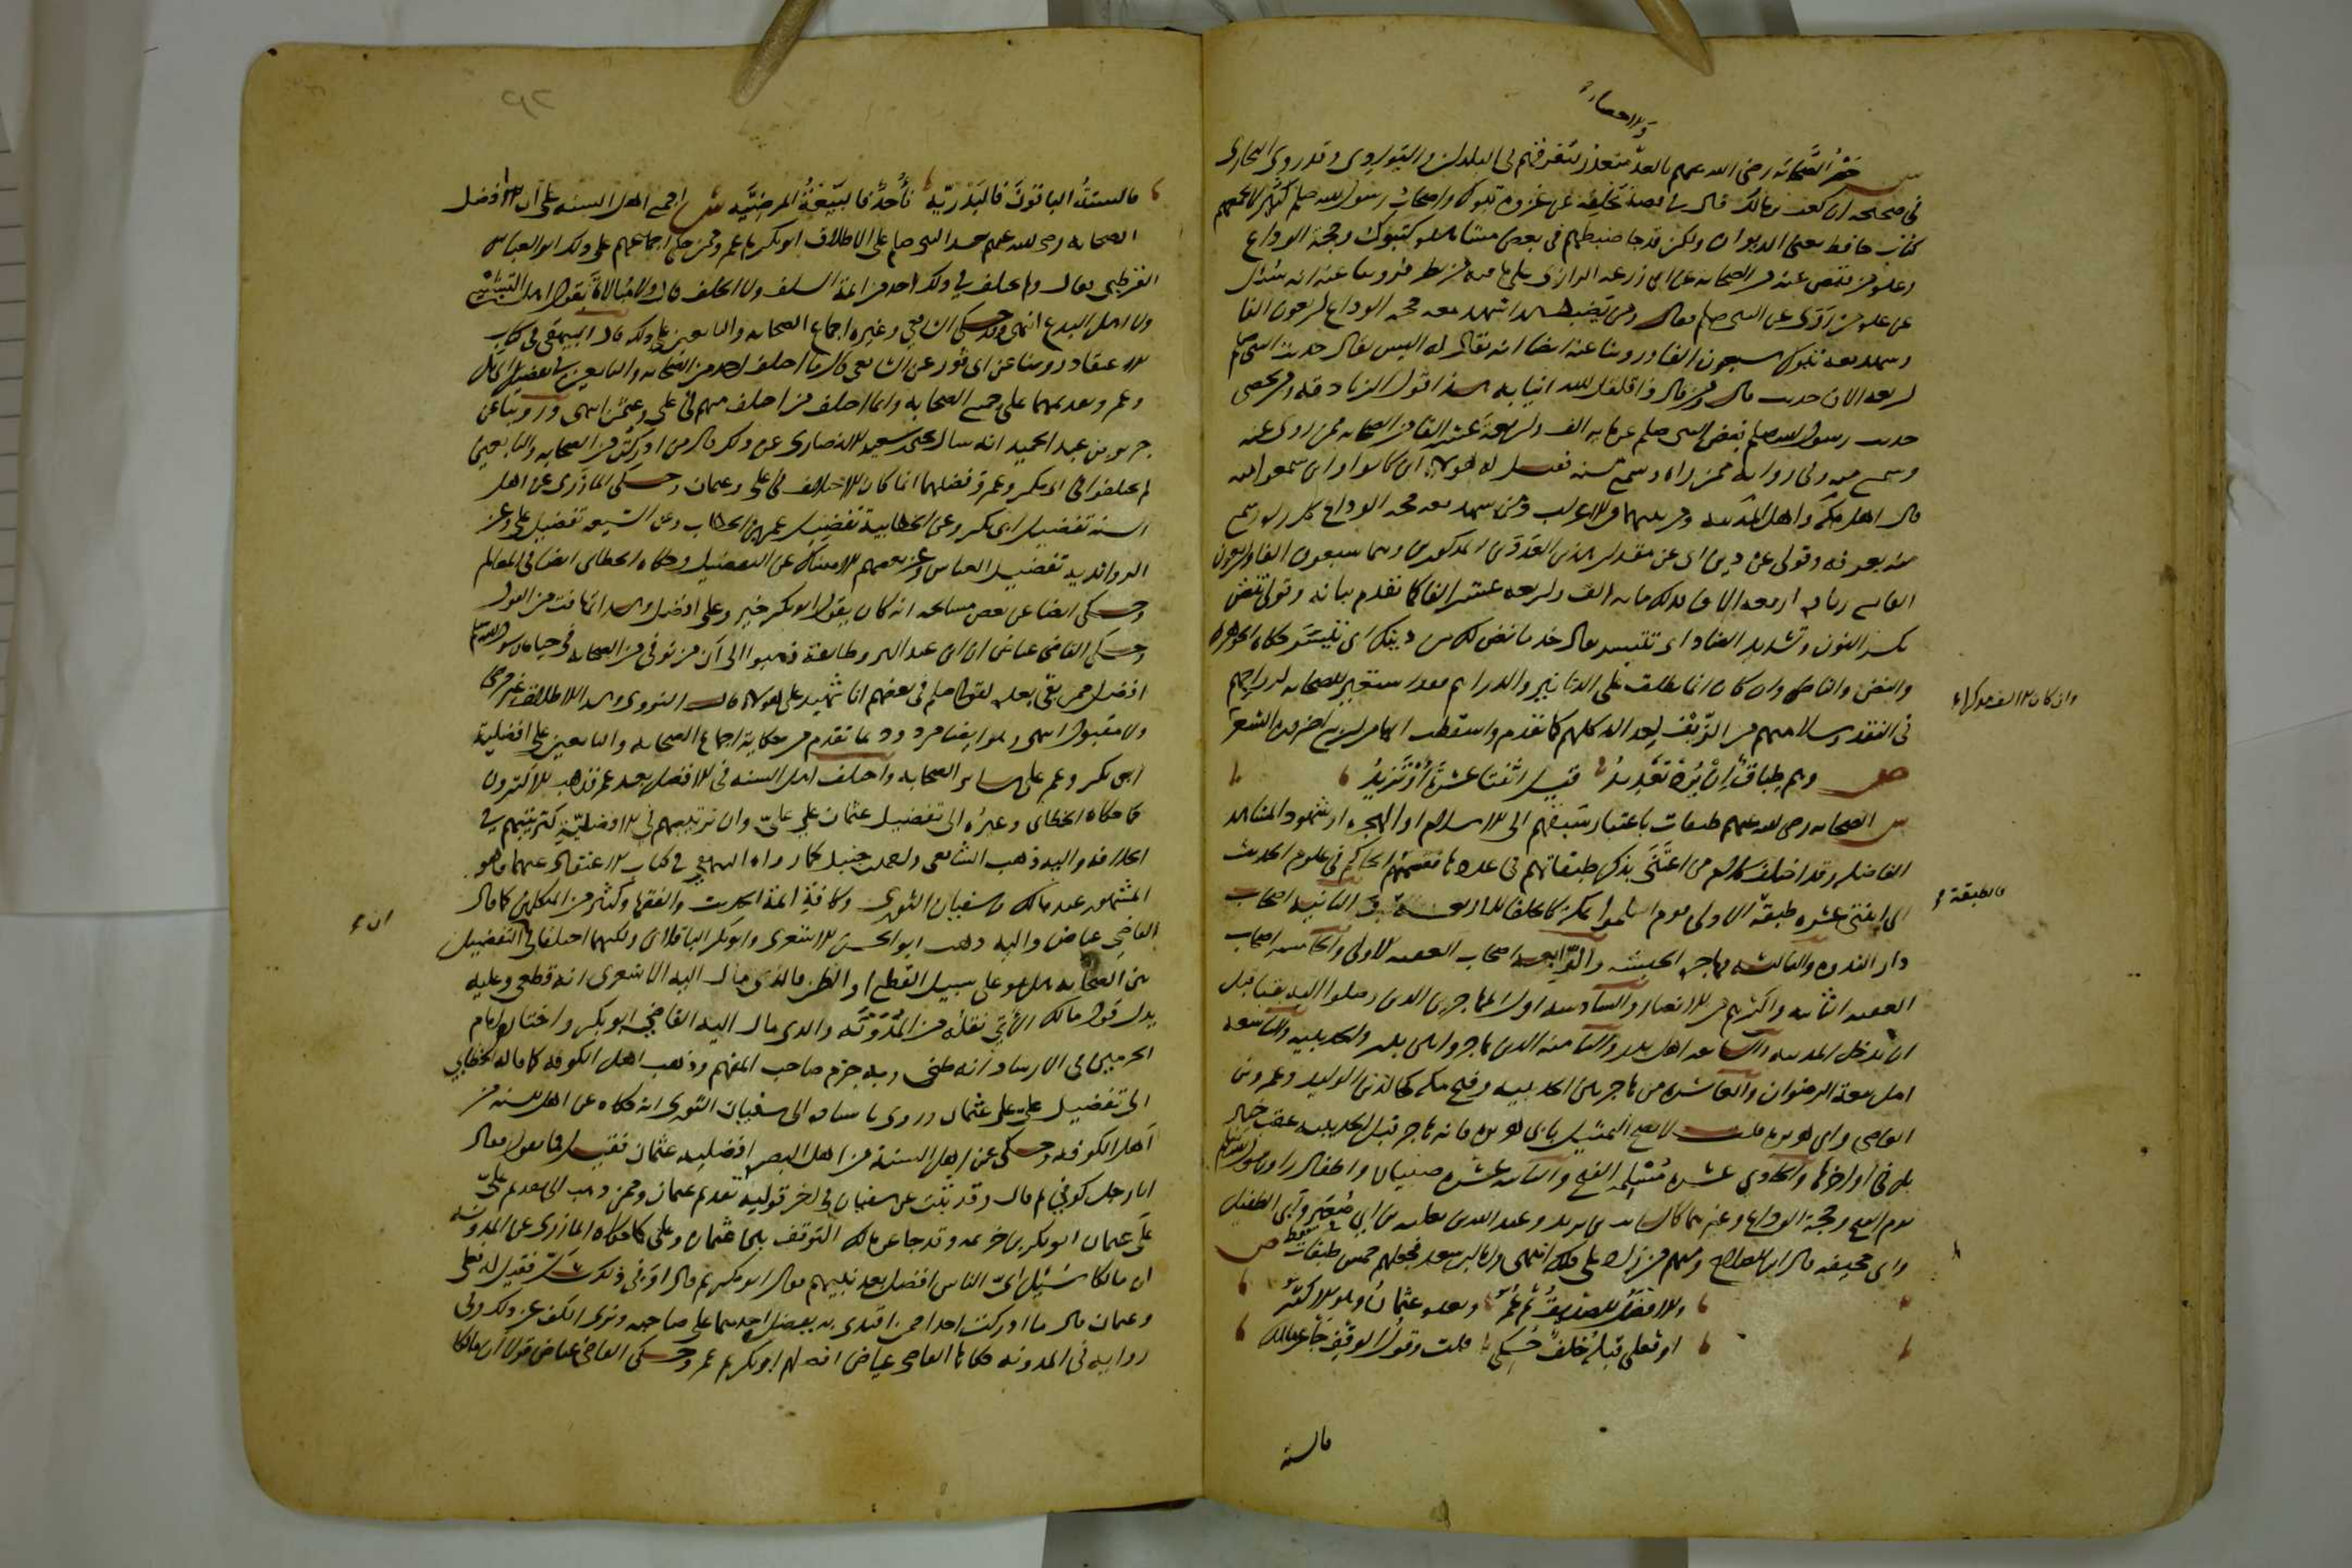 والاحصار
ش حصر الصحابة رضي الله عنهم بالعد متعذر لتفرقهم في البلدان والبوادي وقد روى البخاري
في صحيحه ان كعب بن مالك قال في قصة تخلفه عن غزوة تبوك واصحاب رسول الله صلعم كثير لا يجمعهم
كتاب حافظ يعني الديوان ولكن قد جا ضبطهم في بعض مشاهده كتبوك وحجة الوداع
وعدة من قبض عنه من الصحابة عن ابي زرعة الرازي على ما فيه من نظر فروينا عنه انه سئل
عن عدة من روى عن النبي صلعم فقال ومن يضبط هذا شهد معه حجة الوداع اربعون الفا
وشهد معه تبوك سبعون الفا وروينا عنه ايضا انه قال له اليس يقال حديث النبي صلعم
اربعة الاف حديث قال ومن قال ذا قلقل الله انيابه هذا قول الزنادقة ومن يحصي
حديث رسول الله صلعم قبض النبي صلعم عن مايه الف واربعة عشر الفا من الصحابة ممن روى عنه
وسمع منه وفي رواية ممن راه وسمع منه فقيل له هولاء اين كانوا واين سمعوا منه
قال اهل مكة واهل المدينة ومن بينهما من الاعراب ومن شهد معه حجة الوداع كل راه وسمع
منه بعرفة وقولي عن دين اي عن مقدار هذين العددين المذكورين وهما سبعون الفا واربعون
الفا مع زيادة اربعة الاف فذلك مايه الف واربعة عشر الفا كما تقدم بيانه وقولي تنض
بكسر النون وتشديد الضاد اي تتيسر يقال خذ ما نض لك من دينك اي تيسر حكاه الجوهري
والنض والناض وان كان انما يطلق على الدنانير والدراهم فقد استعير للصحابة لرواجهم
في النقد وسلامتهم من الزيف لعدالة كلهم كما تقدم واسقطت الها من اربعين لضرورة الشعر
ص وهم طباق ان يرد تعديد قيل اثنتا عشرة او تزيد
ش الصحابة رضي الله عنهم طبقات باعتبار سبقهم الى الاسلام او الهجرة او شهود المشاهد
الفاضلة وقد اختلف كلام من اعتنى بذكر طبقاتهم في عدها فقسمهم الحاكم في علوم الحديث
الى اثنتي عشرة طبقة الاولى قوم اسلموا بمكة كالخلفا الاربعة والثانية اصحاب
دار الندوة والثالثة مهاجرة الحبشة والرابعة اصحاب العقبة الاولى والخامسة اصحاب
العقبة الثانية واكثرهم من الانصار والسادسة اول المهاجرين الذين وصلوا اليه بقبا قبل
ان يدخل المدينة والسابعة اهل بدر والثامنة الذين هاجروا بين بدر والحديبية والتاسعة
اهل بيعة الرضوان والعاشرة من هاجر بين الحديبية وفتح مكة كخالد بن الوليد وعمرو بن
العاصي وابي هريرة قلت لا يصح التمثيل بابي هريرة فانه هاجر قبل الحديبية عقب خيبر
بل في اواخرها والحادية عشرة مسلمة الفتح والثانية عشرة صبيان واطفال راوا رسول الله صلعم
يوم الفتح وحجة الوداع وغيرهما كالسايب بن يزيد وعبد الله بن ثعلبة بن ابي صعير وابي الطفيل
وابي جحيفة قال ابن الصلاح ومنهم من زاد على ذلك انتهى واما ابن سعد فجعلهم خمس طبقات فقط ص
والافضل الصديق ثم عمر وبعده عثمان وهو الاكثر
او فعلي قبله خلف حكي قلت وقول الوقف جا عن مالك
فالستة
وان كان الفموركهاء
فالطبقة
فالستة الباقون فالبدرية فاحد فالبيعة المرضية ش اجمع اهل السنة على ان افضل
الصحابة رضي الله عنهم بعد النبي صلعم على الاطلاق ابو بكر ثم عمر وممن حكى اجماعهم على ذلك ابو العباس
القرطبي فقال ولم يختلف في ذلك احد من ائمة السلف ولا الخلف قال ولا مبالاة بقول اهل التشيع
ولا اهل البدع انتهى وقد حكى الشافعي وغيره اجماع الصحابة والتابعين على ذلك قال البيهقي في كتاب
الاعتقاد روينا عن ابي ثور عن الشافعي قال ما اختلف احد من الصحابة والتابعين في تفضيل ابي بكر
وعمر وتقديمهما على جميع الصحابة وانما اختلف من اختلف منهم في علي وعثمن انتهى وروينا عن
جرير بن عبد الحميد انه سال يحيى بن سعيد الانصاري عن ذلك فقال من ادركت من الصحابة والتابعين
لم يختلفوا في ابي بكر وعمر وفضلهما انما كان الاختلاف في علي وعثمان وحكى المازري عن اهل
السنة تفضيل ابي بكر وعن الخطابية تفضيل عمر بن الخطاب وعن الشيعة تفضيل علي وعن
الرواندية تفضيل العباس وعن بعضهم الامساك عن التفضيل وحكاه الخطابي ايضا في المعالم
وحكى ايضا عن بعض مشايخه انه كان يقول ابو بكر خير وعلي افضل وهذا تهافت من القول
وحكى القاضي عياض ان ابن عبد البر وطائفة ذهبوا الى ان من توفي من الصحابة في حياة رسول الله صلعم
افضل ممن بقي بعده لقوله صلعم في بعضهم انا شهيد على هولاء قال النووي وهذا الاطلاق غير مرضي
ولا مقبول انتهى وهو ايضا مردود بما تقدم من حكاية اجماع الصحابة والتابعين على افضلية
ابي بكر وعمر على ساير الصحابة واختلف اهل السنة في الافضل بعد عمر فذهب الاكثرون
كما حكاه الخطابي وغيره الى تفضيل عثمان على علي وان ترتيبهم في الافضلية كترتيبهم في
الخلافة واليه ذهب الشافعي واحمد بن حنبل كما رواه البيهقي في كتاب الاعتقاد عنهما وهو
المشهور عند مالك وسفيان الثوري وكافة ائمة الحديث والفقها وكثير من المتكلمين كما قال
القاضي عياض واليه ذهب ابو الحسن الاشعري وابو بكر الباقلاني ولكنهما اختلفا في التفضيل
بين الصحابة هل هو على سبيل القطع او الظن فالذي مال اليه الاشعري انه قطعي وعليه
يدل قول مالك الاتي نقله من المدونة والذي مال اليه القاضي ابو بكر واختاره امام
الحرمين في الارشاد انه ظني وبه جزم صاحب المفهم وذهب اهل الكوفة كما قاله الخطابي
الى تفضيل علي على عثمان وروى باسناده الى سفيان الثوري انه حكاه عن اهل السنة من
اهل الكوفة وحكى عن اهل السنة من اهل البصرة افضلية عثمان فقيل فما تقول فقال
انا رجل كوفي ثم قال وقد ثبت عن سفيان في اخر قوليه تقديم عثمان وممن ذهب الى تقديم علي
على عثمان ابو بكر بن خزيمة وقد جا عن مالك التوقف بين عثمان وعلي كما حكاه المازري عن المدونة
ان مالكا سئل اي الناس افضل بعد نبيهم فقال ابو بكر ثم قال اوفي ذلك شك فقيل له فعلي
وعثمان قال ما ادركت احدا ممن اقتدي به يفضل احدهما على صاحبه ونرى الكف عن ذلك وفي
رواية في المدونة حكاها القاضي عياض افضلهم ابو بكر ثم عمر وحكى القاضي عياض قولا ان مالكا